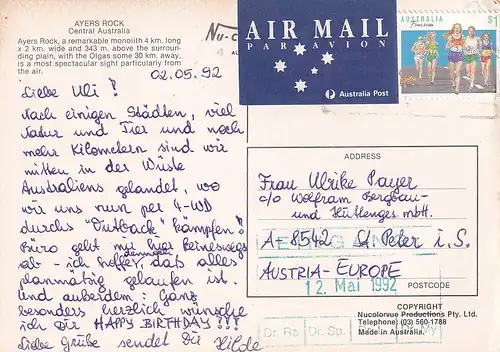 AYERS ROCK
Central Australia
Ayers Rock, a remarkable monolith 4 km. long
x 2 km. wide and 343 m. above the surroun-
ding plain, with the Olgas some 30 km. away,
is a most spectacular sight particularly from
the air.
02.05.92
Liebe Uli!
Nach einigen Städten, viel
Natur und Tier und noch
mehr Kilometern sind wir
mitten in der Wüste
Australiens gelandet, wo
wir uns nun per 4-WD
durchs "Outback" kämpfen!
Büro geht mir hier keineswegs
ab - ich hoffe, dennoch daß alles
planmäßig gelaufen ist.
Und außerdem: Ganz
besonders herzlich wünsche
ich Dir HAPPY BIRTHDAY!!!
Liebe Grüße sendet Dir Hilde
AIR MAIL
PAR AVION
Australia Post
AUSTRALIA
$1
Fun run
ADDRESS
Frau Ulrike Payer
c/o Wolfram Bergbau-
und Hüttenges. mbH.
A-8542 St. Peter i. S.
AUSTRIA-EUROPE
POSTCODE
12. Mai 1992
COPYRIGHT
Nucolorvue Productions Pty. Ltd.
Telephone: (03) 560-1788
Made in Australia.
Dr. Ra Dr. Sp My